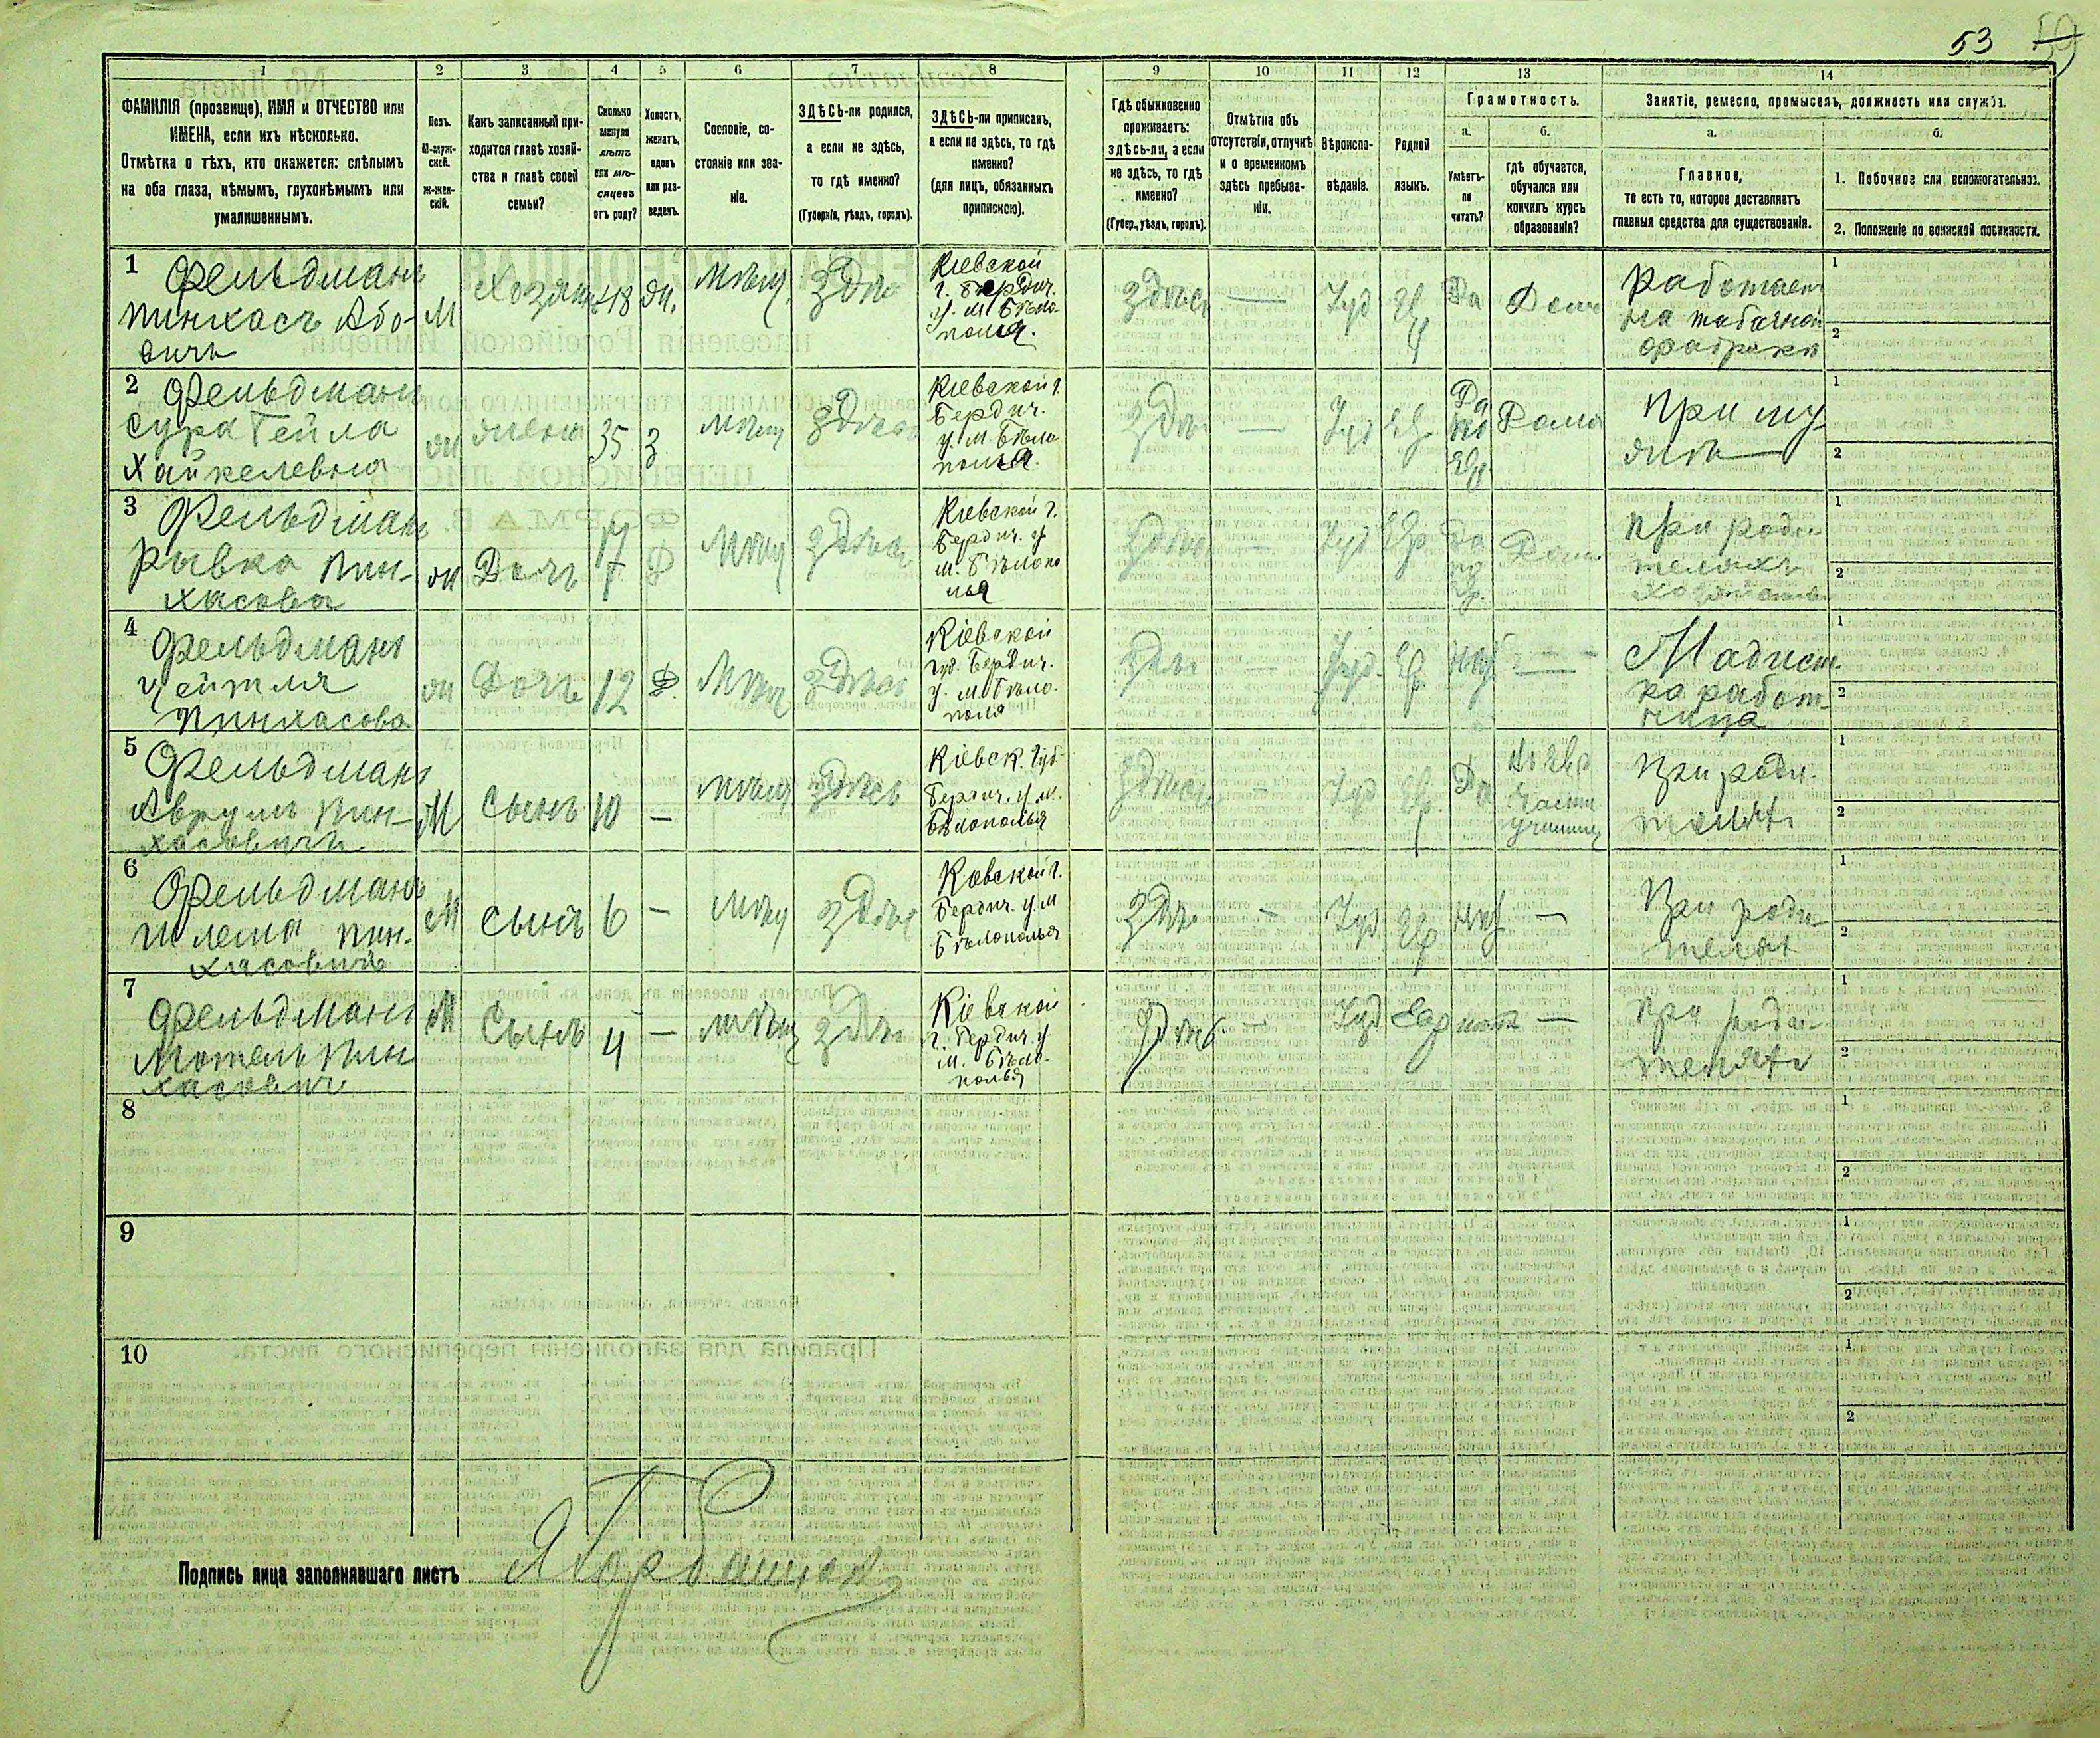 53 59
1 2 3 4 5 6 7 8 9 10 11 12 13 14
ФАМИЛІЯ (прозвище), ИМЯ и ОТЧЕСТВО или
ИМЕНА, если ихъ нѣсколько.
Отмѣтка о тѣхъ, кто окажется: слѣпымъ
на оба глаза, нѣмымъ, глухонѣмымъ или
умалишеннымъ.
Полъ.
М-муж-
ской.
Ж-жен-
скій.
Какъ записанный при-
ходится главѣ хозяй-
ства и главѣ своей
семьи?
Сколько
минуло
лѣтъ
или мѣ-
сяцевъ
отъ роду?
Холостъ,
женатъ,
вдовъ
или раз-
веденъ.
Сословіе, со-
стояніе или зва-
ніе.
ЗДѢСЬ-ли родился,
а если не здѣсь,
то гдѣ именно?
(Губернія, уѣздъ, городъ).
ЗДѢСЬ-ли приписанъ,
а если не здѣсь, то гдѣ
именно?
(для лицъ, обязанныхъ
припискою).
Гдѣ обыкновенно
проживаетъ:
здѣсь-ли, а если
не здѣсь, то гдѣ
именно?
(Губер., уѣздъ, городъ).
Отмѣтка объ
отсутствіи, отлучкѣ
и о временномъ
здѣсь пребыва-
ніи.
Вѣроиспо-
вѣданіе.
Родной
языкъ.
Грамотность.
а.
Умѣетъ-
ли
читать?
б.
гдѣ обучается,
обучался или
кончилъ курсъ
образованія?
Занятіе, ремесло, промыселъ, должность или служба.
а.
Главное,
то есть то, которое доставляетъ
главныя средства для существованія.
б.
1. Побочное или вспомогательное.
2. Положеніе по воинской повинности.
1
Фельдманъ
Пинхасъ Або-
вичъ
М
Хозяинъ
48
ж.
Мѣщ.
Здѣсь
Кіевской
г. Бердич.
у. м Бѣло
полья.
Здѣсь
—
Іуд
Ев
Да
Дома
Работаетъ
на табачной
фабрики
1
2
2
Фельдманъ
Сура Гейла
Хайкелевна
ж
жена
35
З.
мѣщ
Здѣсь
Кіевской г.
Бердич.
у м Бѣло
полья.
Здѣсь
—
Іуд
Ев
Да
по
Ев
Дома
При му
жѣ
1
2
3
Фельдманъ
Рывка Пин-
хасова
ж
Дочь
17
Д
Мѣщ
Здѣсь
Кіевской г.
Бердич. у
м. Бѣлопо
лья
Здѣсь
—
Іуд
Евр
Да
по
Ев.
Дома
При роди
теляхъ
1
2
4
Фельдманъ
Цейтля
Пинхасова
ж
Дочь
12
Д.
Мѣщ
Здѣсь
Кіевской
губ. Бердич.
у. м Бѣло
полья
Здѣсь
—
Іуд.
Ев
нѣт
—
Модист
ка работ-
ница
1
2
5
Фельдманъ
Аврумъ Пин-
хасовичъ
М
Сынъ
10
—
мѣщ
Здѣсь
Кіевск. Губ.
Бердич. у м.
Бѣлополья
Здѣсь
—
Іуд
Ев.
Да
При роди.
телях
1
2
6
Фельдманъ
Шлема Пин-
хасовичъ
М
Сынъ
6
—
Мѣщ
Здѣсь
Кіевской г.
Бердич. у м
Бѣлополья
Здѣсь
—
Іуд
Ев
нѣт
—
При роди
телях
1
2
7
Фельдманъ
Мотель Пин
хасович
М
Сынъ
4
—
мѣщ
Здѣсь
Кіевской
г. Бердич. у
м. Бѣло-
полья
Здѣсь
—
Іуд
Евр
нѣт
—
При роди
телях
1
2
8
1
2
9
1
2
10
1
2
Подпись лица заполнявшаго листъ